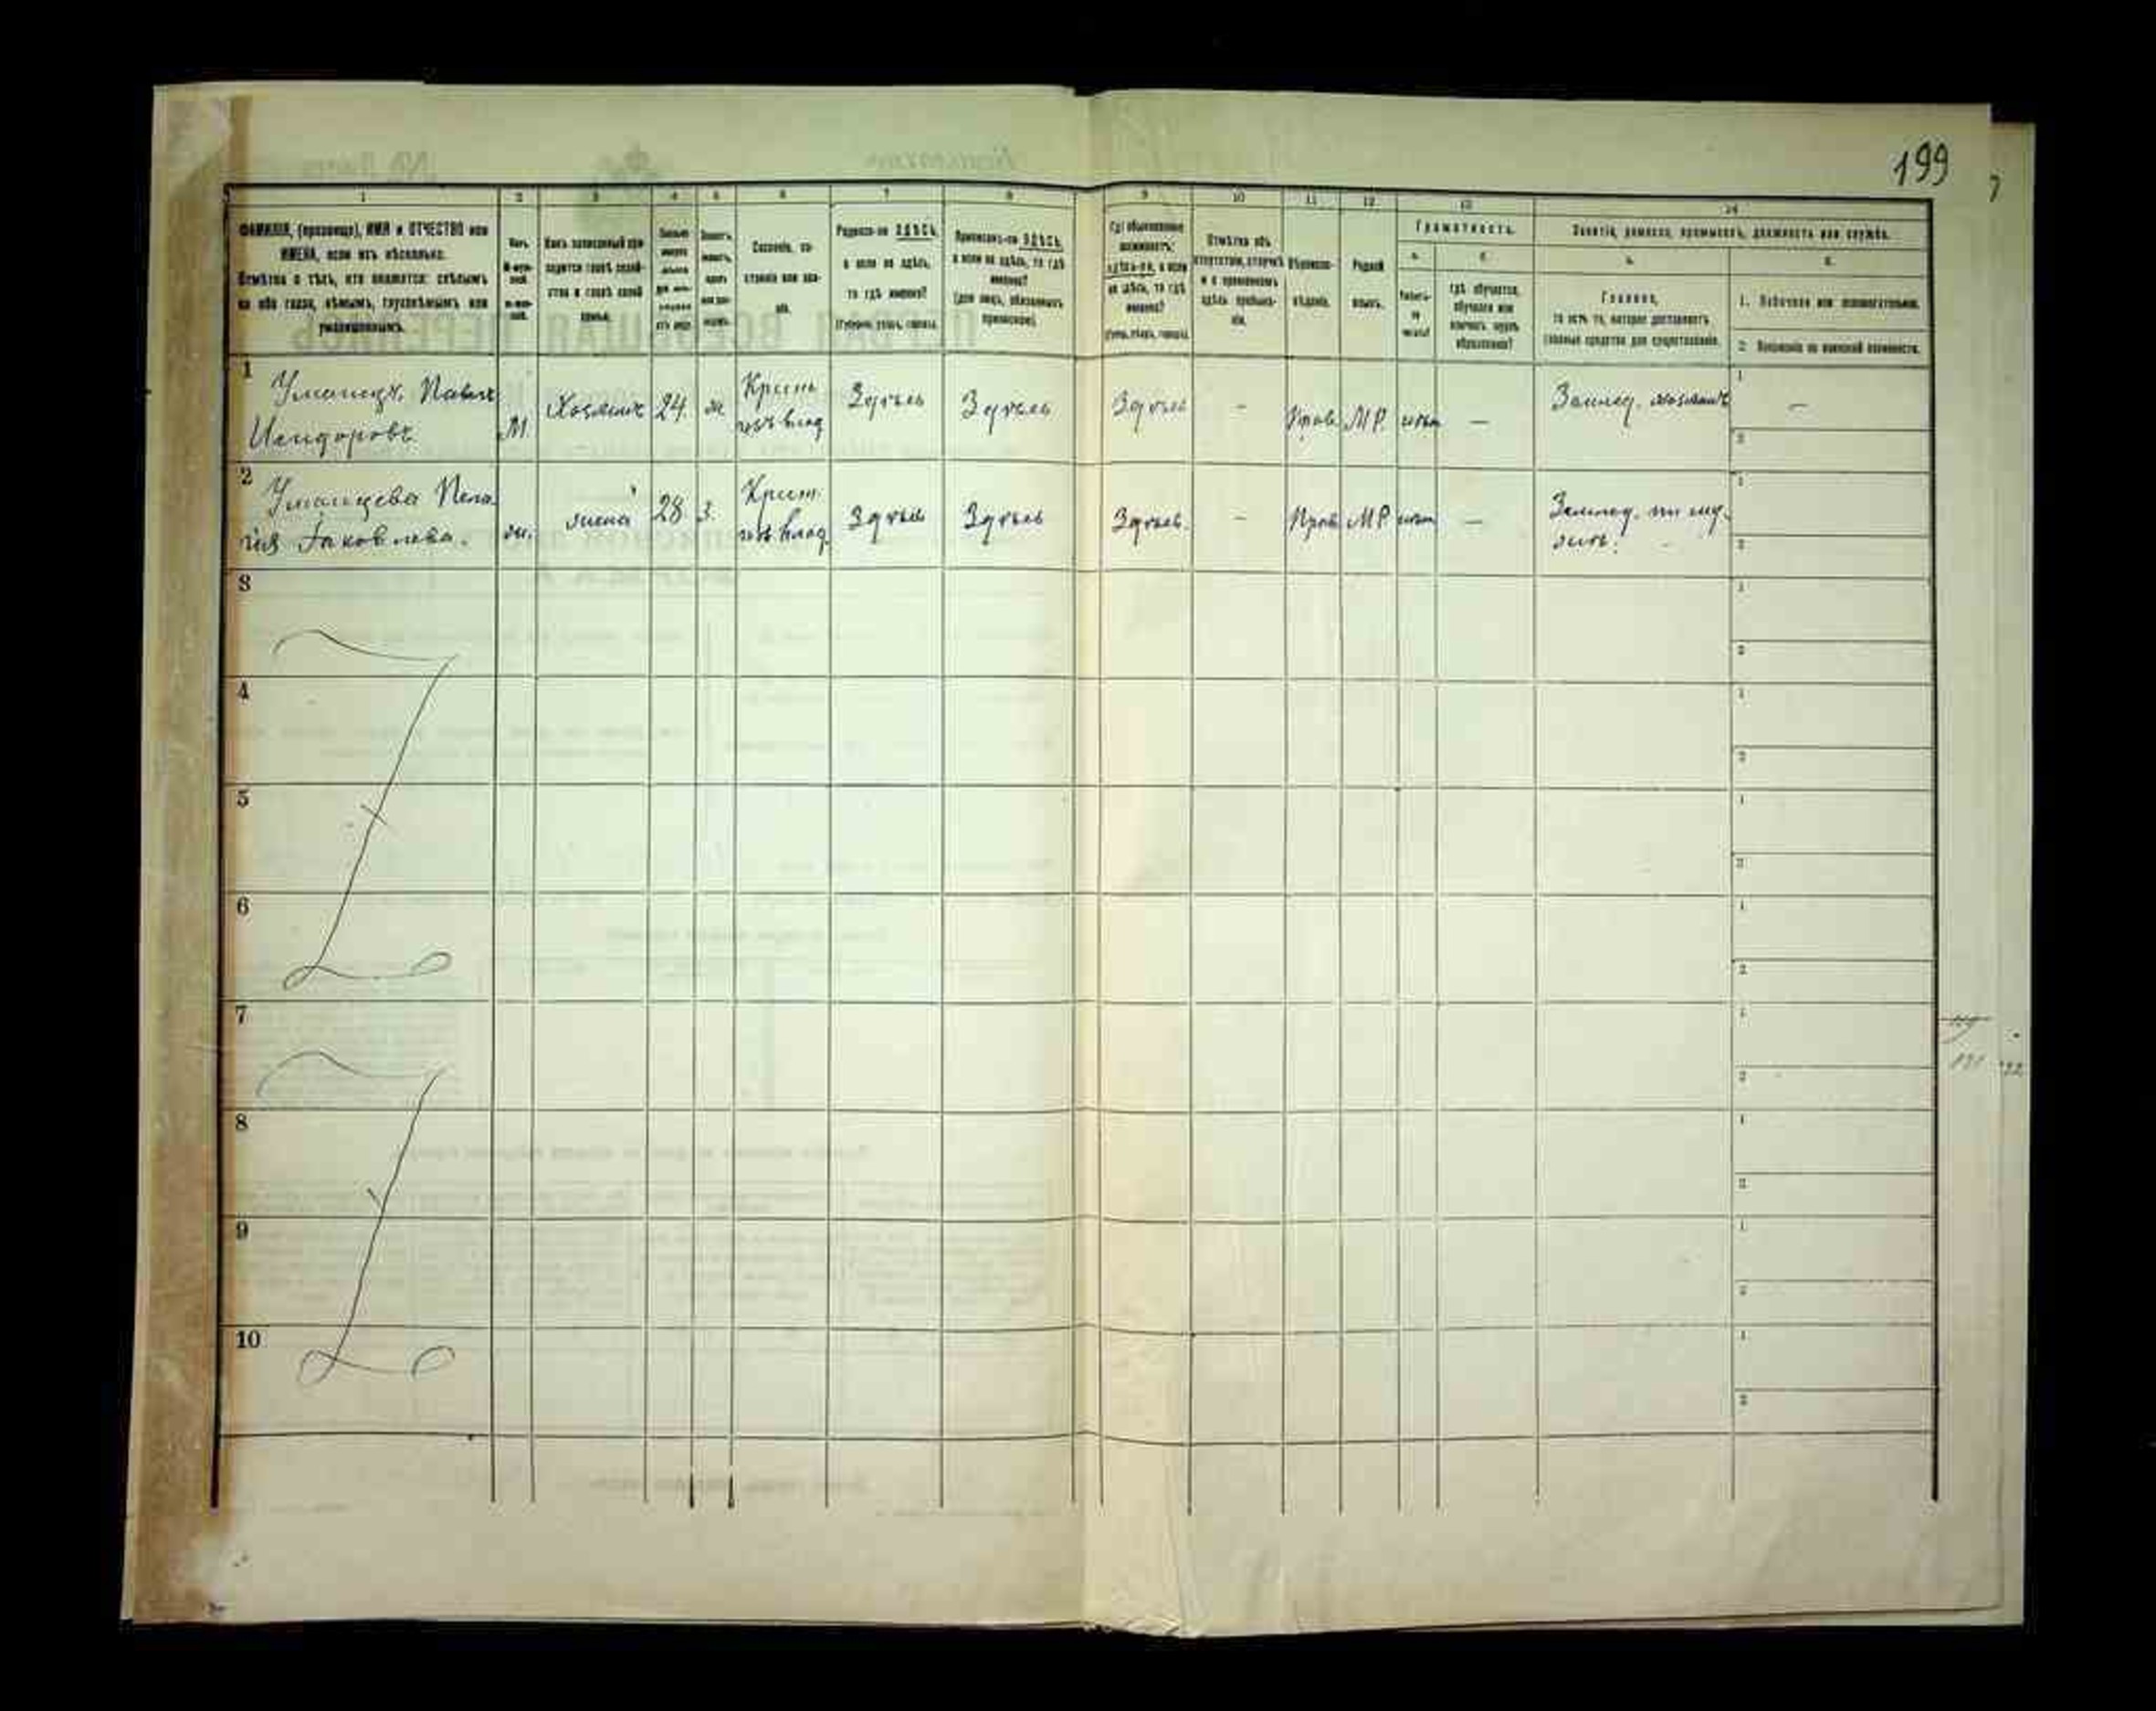 199
1 2 3 4 5 6 7 8 9 10 11 12 13 14
ФАМИЛІЯ, (прозвище), ИМЯ и ОТЧЕСТВО или
ИМЕНА, если ихъ нѣсколько.
Отмѣтка о тѣхъ, кто окажется: слѣпымъ
на оба глаза, нѣмымъ, глухонѣмымъ или
умалишеннымъ.
Полъ.
М-муж-
ской.
Ж-жен-
скій.
Какъ записанный при-
ходится главѣ хозяй-
ства и главѣ своей
семьи.
Сословіе, со-
стояніе или зва-
ніе.
Родился-ли ЗДѢСЬ,
а если не здѣсь,
то гдѣ именно?
(Губернія, уѣздъ, городъ).
Приписанъ-ли ЗДѢСЬ,
а если не здѣсь, то гдѣ
именно?
(для лицъ, обязанныхъ
припискою).
Гдѣ обыкновенно
проживаетъ:
здѣсь-ли, а если
не здѣсь, то гдѣ
именно?
(Губ., уѣздъ, городъ).
Отмѣтка объ
отсутствіи, отлучкѣ
и о временномъ
здѣсь пребыва-
ніи.
Вѣроиспо-
вѣданіе.
Родной
языкъ.
Грамотность.
а. б.
Умѣетъ-
ли
читать?
Гдѣ обучается,
обучался или
кончилъ курсъ
образованія?
Занятіе, ремесло, промыселъ, должность или служба.
а. б.
Главное,
то есть то, которое доставляетъ
главныя средства для существованія.
1. Побочное или вспомогательное.
2. Положеніе по воинской повинности.
1 Уманецъ Павелъ
Исидоровъ М. Хозяинъ 24 ж Крестъ
изъ влад Здѣсь Здѣсь Здѣсь - Прав. МР. нѣтъ — Землед. хозяинъ —
2 Уманцева Пела
гія Яковлева. ж. жена 28 з. Крест.
изъ влад. Здѣсь Здѣсь Здѣсь. - Прав МР нѣтъ — Землед. при му-
жѣ.
3
4
5
6
7
8
9
10